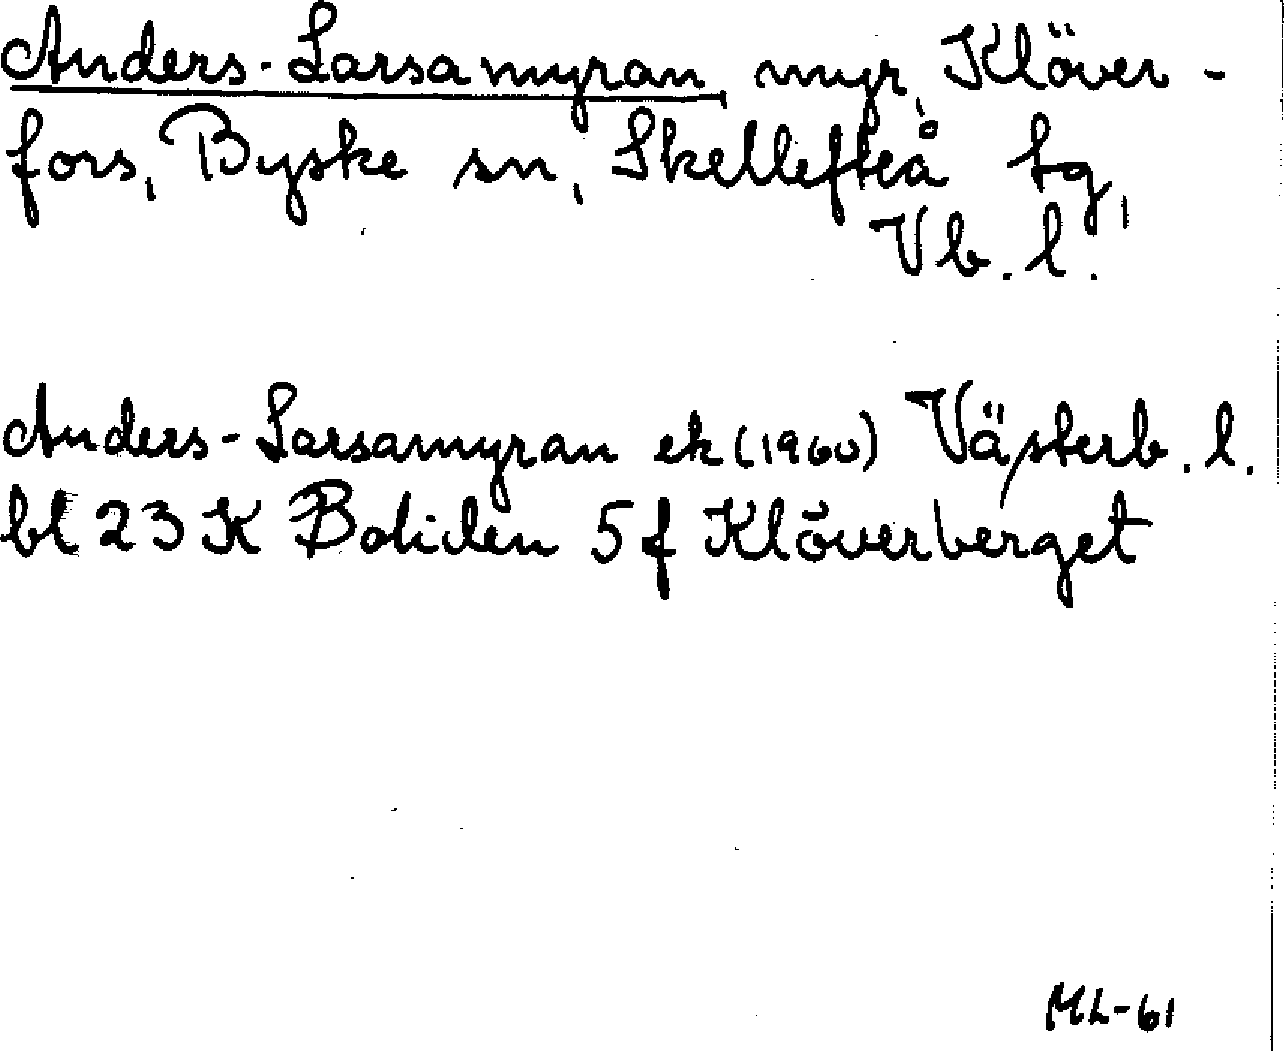 Anders-Larsamyran myr, Klöver-
fors, Byske sn, Skellefteå tg,
Vb. l.
Anders-Larsamyran ek (1960) Västerb. l.
bl 23 K Boliden 5 f Klöverberget
ML-61